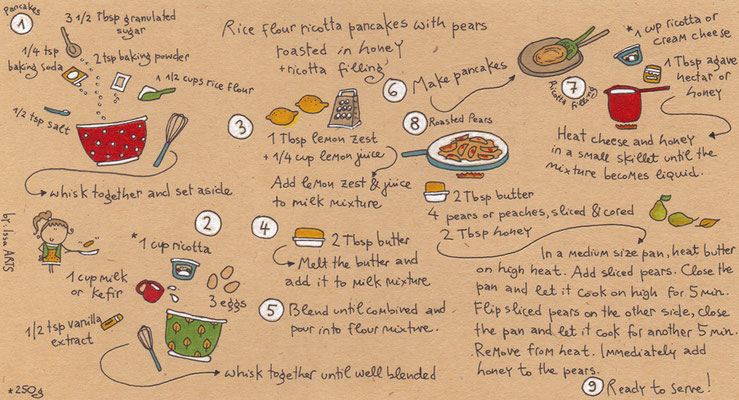 Rice flour ricotta pancakes with pears
roasted in honey
+ ricotta filling
Pancakes
1
3 1/2 Tbsp granulated
sugar
1/4 tsp
baking soda
2 tsp baking powder
1 1/2 cups rice flour
1/2 tsp salt
whisk together and set aside
by: Issa ARTS
2
*1 cup ricotta
1 cup milk
or kefir
3 eggs
1/2 tsp vanilla
extract
whisk together until well blended
*250g
3
1 Tbsp lemon zest
+ 1/4 cup lemon juice
Add lemon zest & juice
to milk mixture
4
2 Tbsp butter
Melt the butter and
add it to milk mixture
5
Blend until combined and
pour into flour mixture.
6
Make pancakes
7
Ricotta filling
*1 cup ricotta or
cream cheese
1 Tbsp agave
nectar or
honey
Heat cheese and honey
in a small skillet until the
mixture becomes liquid.
8
Roasted Pears
2 Tbsp butter
4 pears or peaches, sliced & cored
2 Tbsp honey
In a medium size pan, heat butter
on high heat. Add sliced pears. Close the
pan and let it cook on high for 5 min.
Flip sliced pears on the other side, close
the pan and let it cook for another 5 min.
Remove from heat. Immediately add
honey to the pears.
9
Ready to serve!